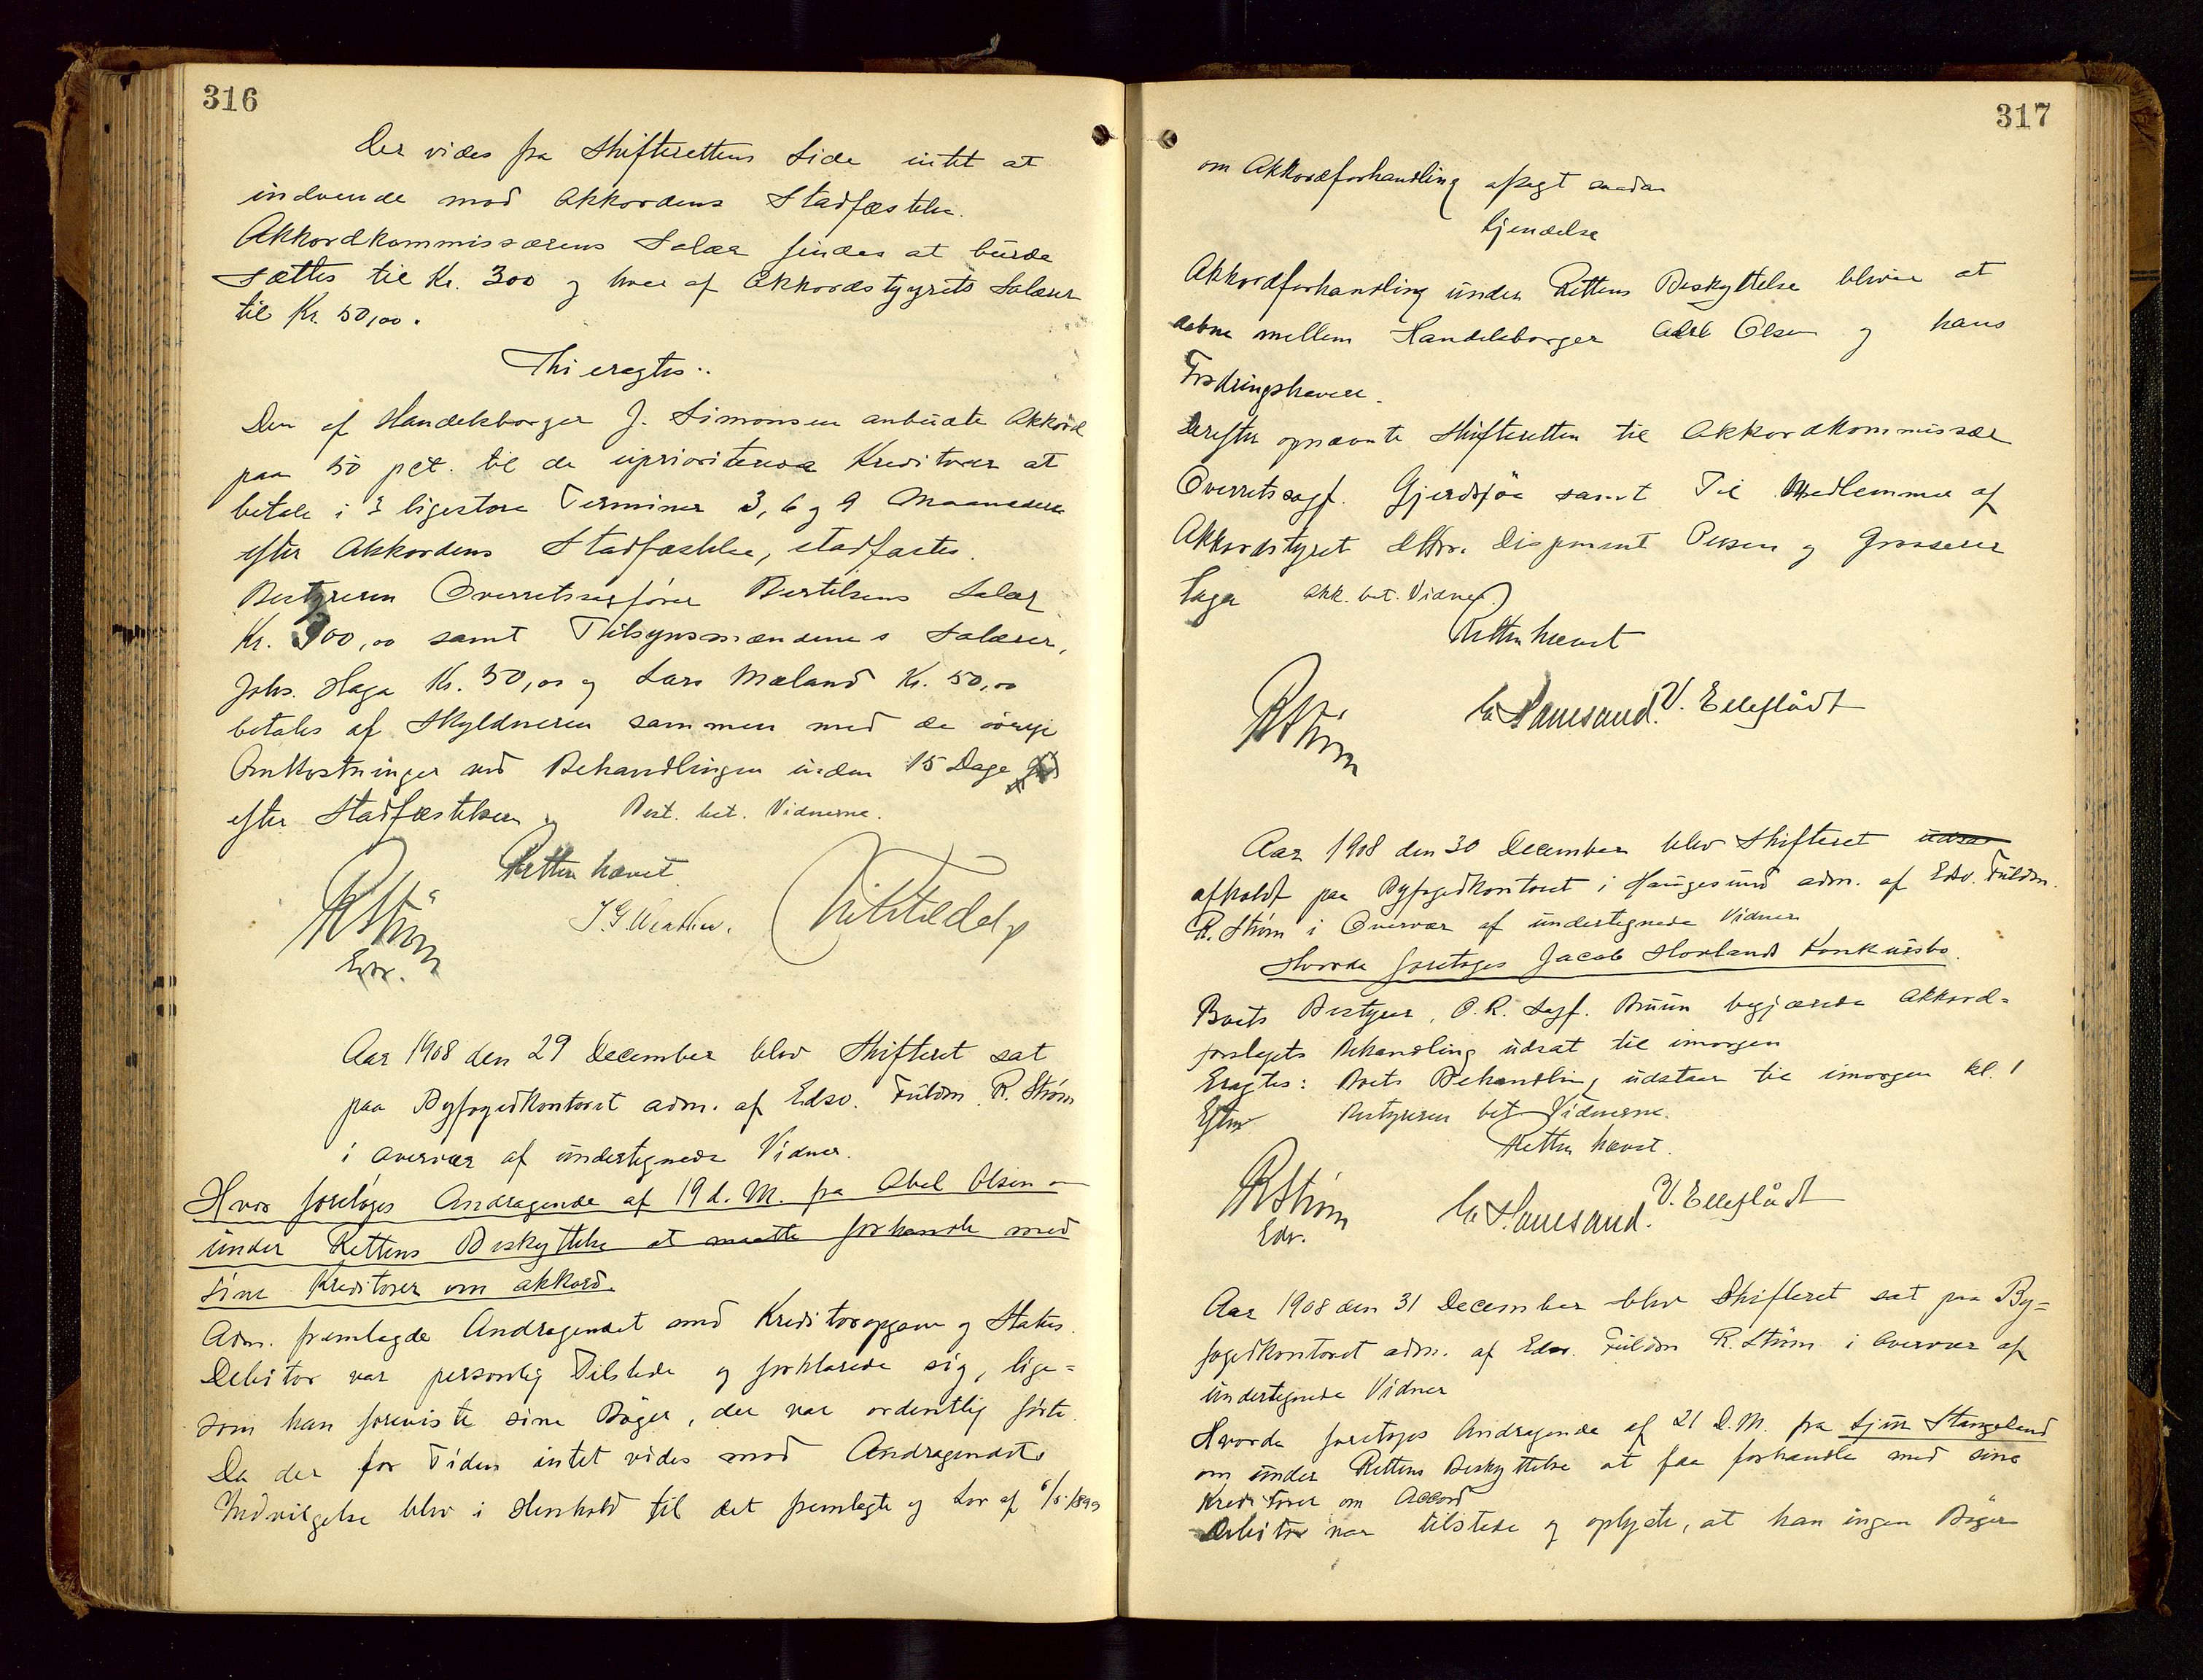 316
Der vides fra Skifterettens Side intet at
indvende mod Akkordens Stadfæstelse.
Akkordkommissærens Salær findes at burde
sættes til Kr. 300 og hver af Akkordstyrets Salærer
til Kr. 50,00.
Thi eragtes:
Den af Handelsborger J. Simonsen anbudte Akkord
paa 50 pct. til de uprioriterede Kreditorer at
betale i 3 ligestore Terminer 3, 6 og 9 Maaneder
efter Akkordens Stadfæstelse, stadfæstes.
Bestyreren Overretssagfører Bertelsens Salær
Kr. 300,00 samt Tilsynsmændenes Salærer,
Johs. Haga Kr. 50,00 og Lars Mæland Kr. 50,00
betales af Skyldneren sammen med de øvrige
Omkostninger ved Behandlingen inden 15 Dage
efter Stadfæstelsen. Best. bet. Vidnerne.
Retten hævet.
RStrøm
Edsv.
Aar 1908 den 29 December blev Skifteret sat
paa Byfogedkontoret adm. af Edsv. Fuldm. R. Strøm
i overvær af undertegnede Vidner.
Hvor foretoges Andragende af 19 d. M. fra Abel Olsen om
under Rettens Beskyttelse at maatte forhandle med
sine Kreditorer om akkord.
Adm. fremlagde Andragendet med Kreditoropgave og Status.
Debitor var personlig Tilstede og forklarede sig, lige=
som han foreviste sine Bøger, der var ordentlig førte.
Da der for Tiden intet vides mod Andragendets
Indvilgelse blev i Henhold til det fremlagte og Lov af 6/5 1899
317
om Akkordforhandling afsagt saadan
Kjendelse
Akkordforhandling under Rettens Beskyttelse bliver at
aabne mellem Handelsborger Abel Olsen og hans
Fordringshavere.
Derefter opnævnte Skifteretten til Akkordkommissær
Overretssagf. Gjerdsjøe samt Til Medlemmer af
Akkordstyret dHrr. Disponent Persen og Grosserer
Haga Akk. bet. Vidner.
Retten hævet
RStrøm V. Elleflådt
Aar 1908 den 30 December blev Skifteret udsa
afholdt paa Byfogedkontoret i Haugesund adm. af Edsv. Fuldm.
R. Strøm i Overvær af undertegnede Vidner
Hvorda foretoges Jacob Hovlands Konkursbo.
Boets Bestyrer, O.R. Sagf. Bruun begjærede akkord=
forslagets Behandling udsat til imorgen
Eragtes: Boets Behandling udstaar til imorgen kl. 1
Efterm Bestyreren bet Vidnerne.
Retten hævet.
RStrøm V. Elleflådt
Edsv.
Aar 1908 den 31 December blev Skifteret sat paa By=
fogedkontoret adm. af Edsv. Fuldm R. Strøm i overvær af
undertegnede Vidner
Hvorda foretoges Andragende af 21 d. M. fra Sjur Stangeland
om under Rettens Beskyttelse at faa forhandle med sine
Kreditorer om Accord
Debitor var tilstede og oplyste, at han ingen Bøger